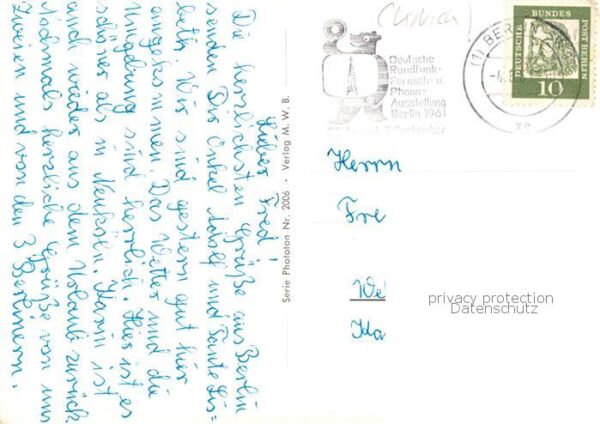 Lieber Fred!
Die herzlichsten Grüße aus Berlin
senden Dir Onkel Adolf und Tante Lis=
beth. Wir sind gestern gut hier
angekommen. Das Wetter und die
Umgebung sind herrlich. Hier ist es
schöner als in Neukölln. Karin ist
auch wieder aus dem Urlaub zurück.
Nochmals herzliche Grüße von uns
Zweien und von den 3 Berlinern.
Serie Phototon Nr. 2006 · Verlag M. W. B.
Deutsche
Rundfunk-
Fernseh- u.
Phono-
Ausstellung
Berlin 1961
September
(1) BERLIN
xe
DEUTSCHE BUNDES POST BERLIN
10
Herrn
Fre
We
Ka
privacy protection
Datenschutz